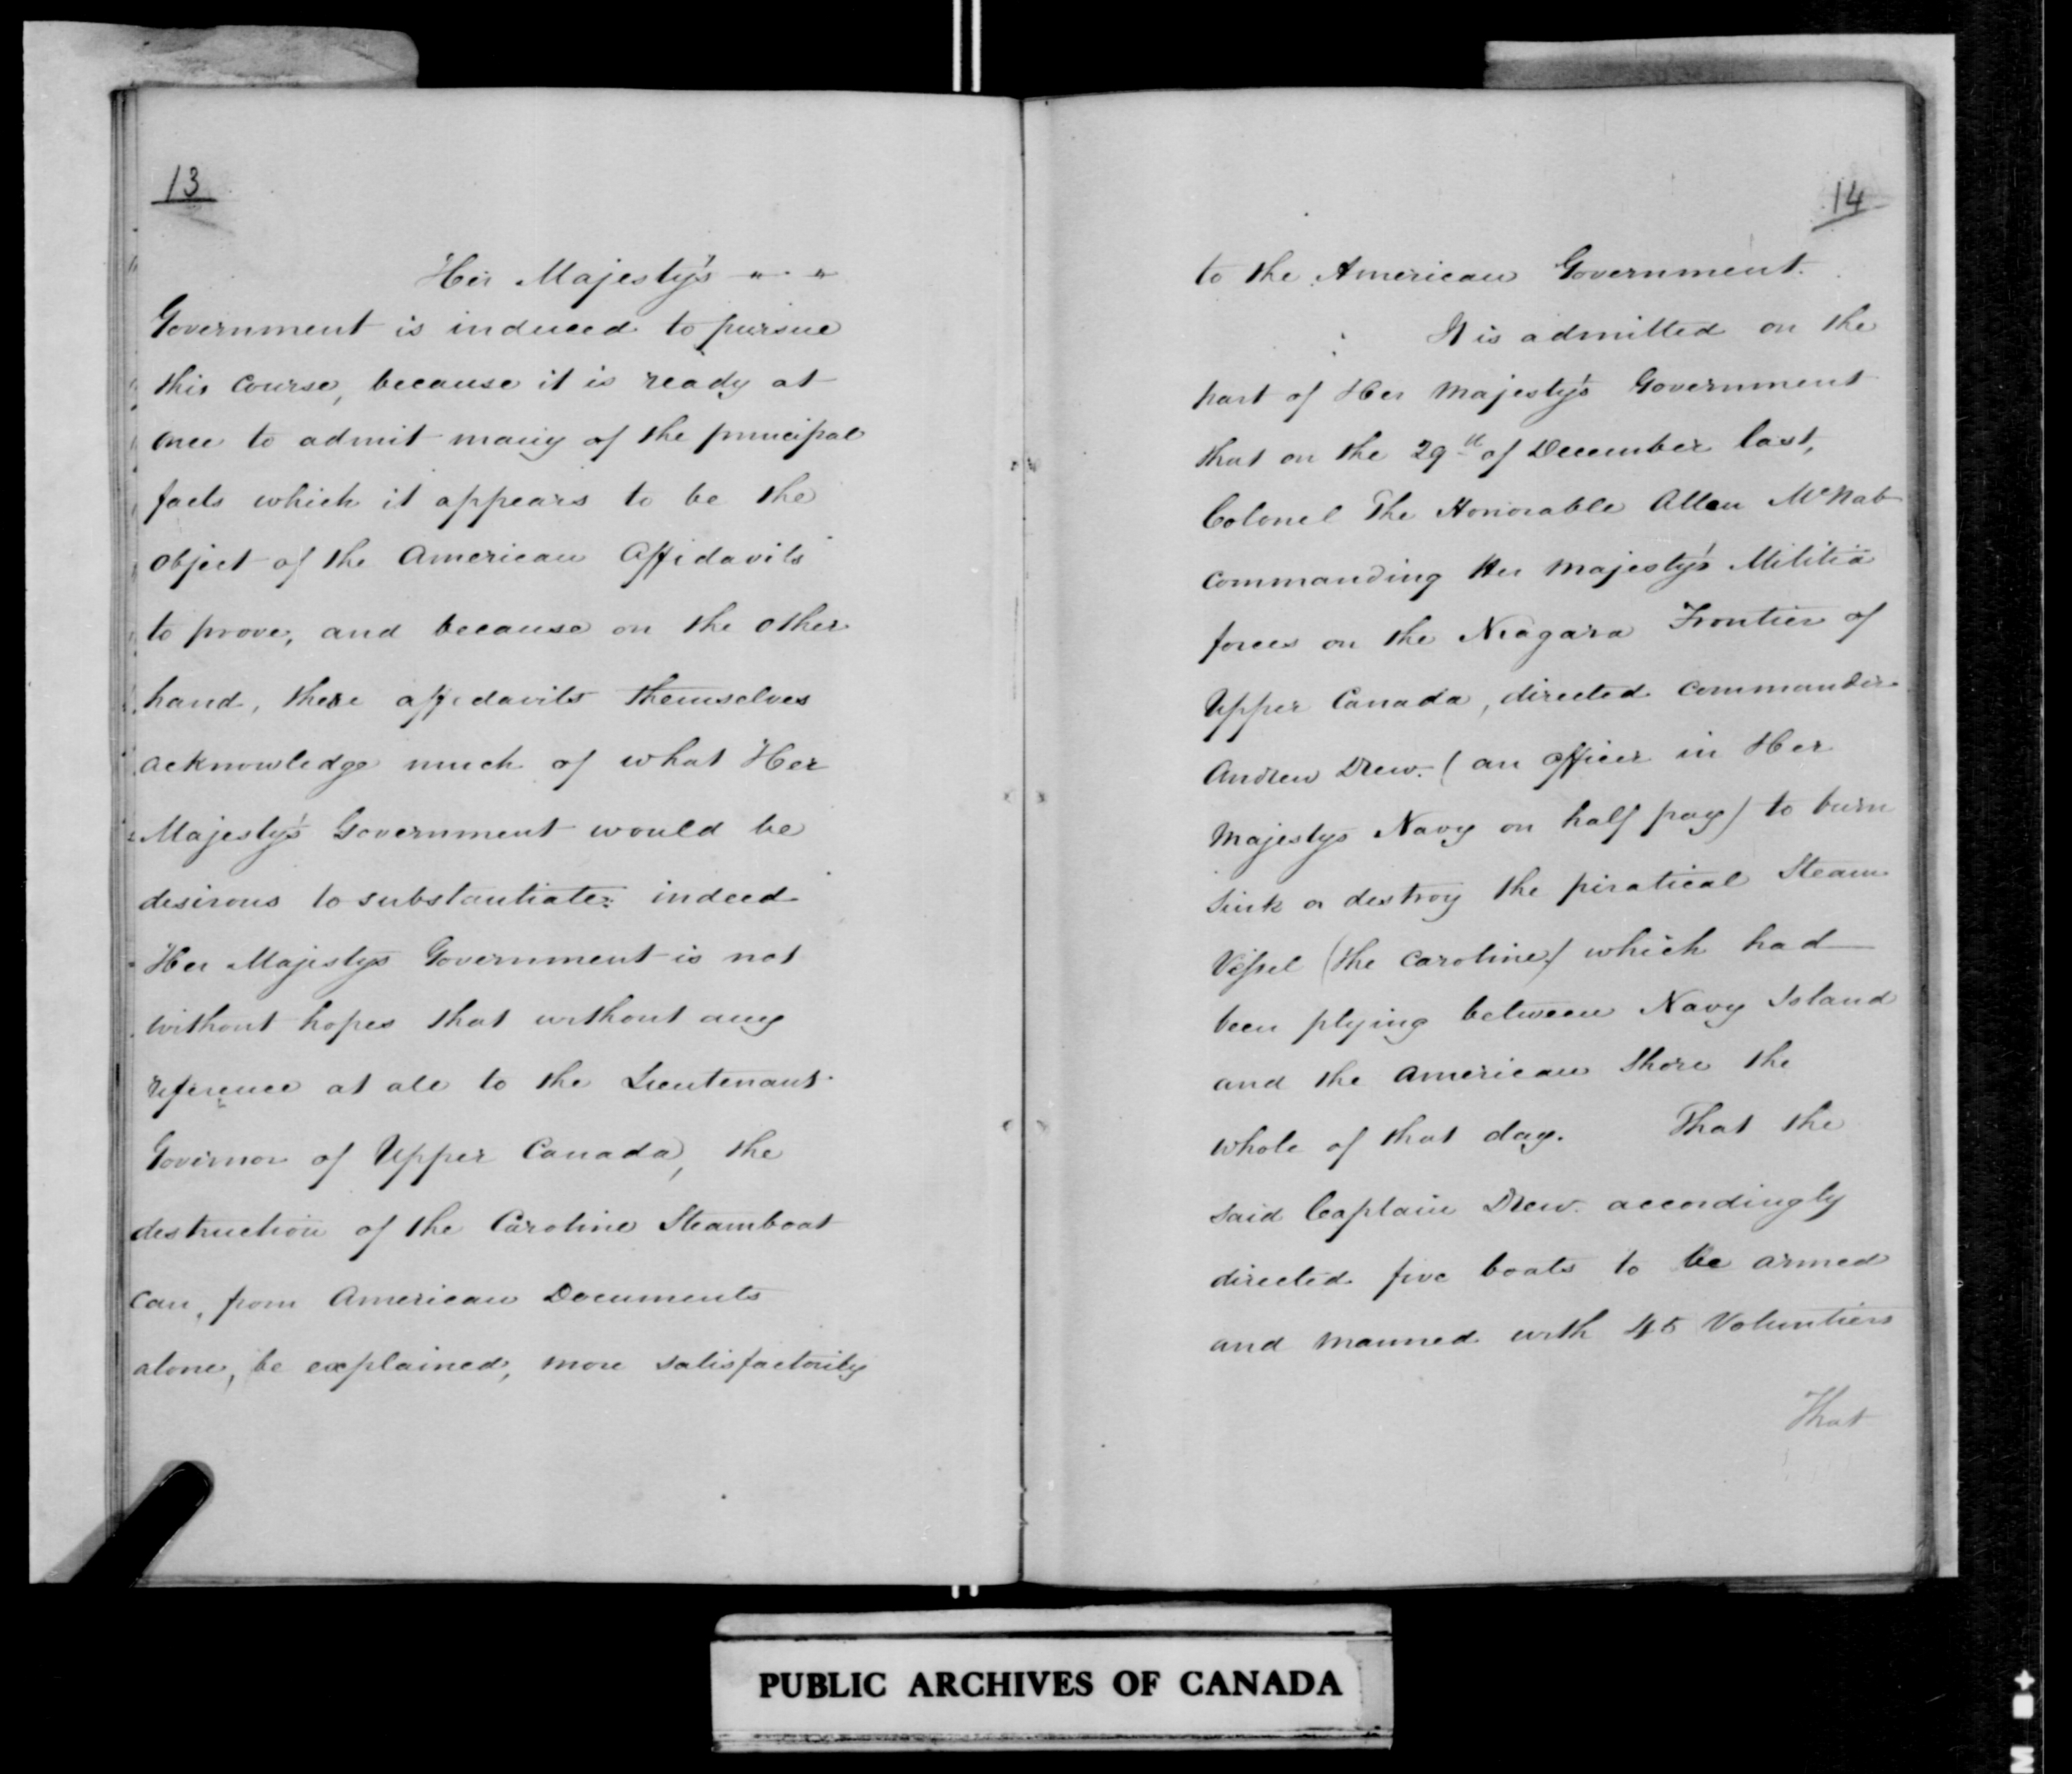 13
Her Majesty's
Government is induced to pursue
this course, because it is ready at
once to admit many of the principal
facts which it appears to be the
object of the American Affidavits
to prove, and because on the other
hand, these affidavits themselves
acknowledge much of what Her
Majesty's Government would be
desirous to substantiate: indeed
Her Majestys Government is not
without hopes that without any
reference at all to the Lieutenant
Governor of Upper Canada, the
destruction of the Caroline Steamboat
can, from American Documents
alone, be explained, more satisfactorily
14
to the American Government.
It is admitted on the
part of Her Majesty's Government
that on the 29th of December last,
Colonel The Honorable Allen McNab
commanding Her Majesty's Militia
forces on the Niagara Frontier of
Upper Canada, directed Commander
Andrew Drew. (an officer in Her
Majestys Navy on half pay) to burn
sink or destroy the piratical Steam
Vessel (the Caroline) which had
been plying between Navy Island
and the American Shore the
whole of that day. That the
said Captain Drew. accordingly
directed five boats to be armed
and manned with 45 Voluntiers
That
PUBLIC ARCHIVES OF CANADA